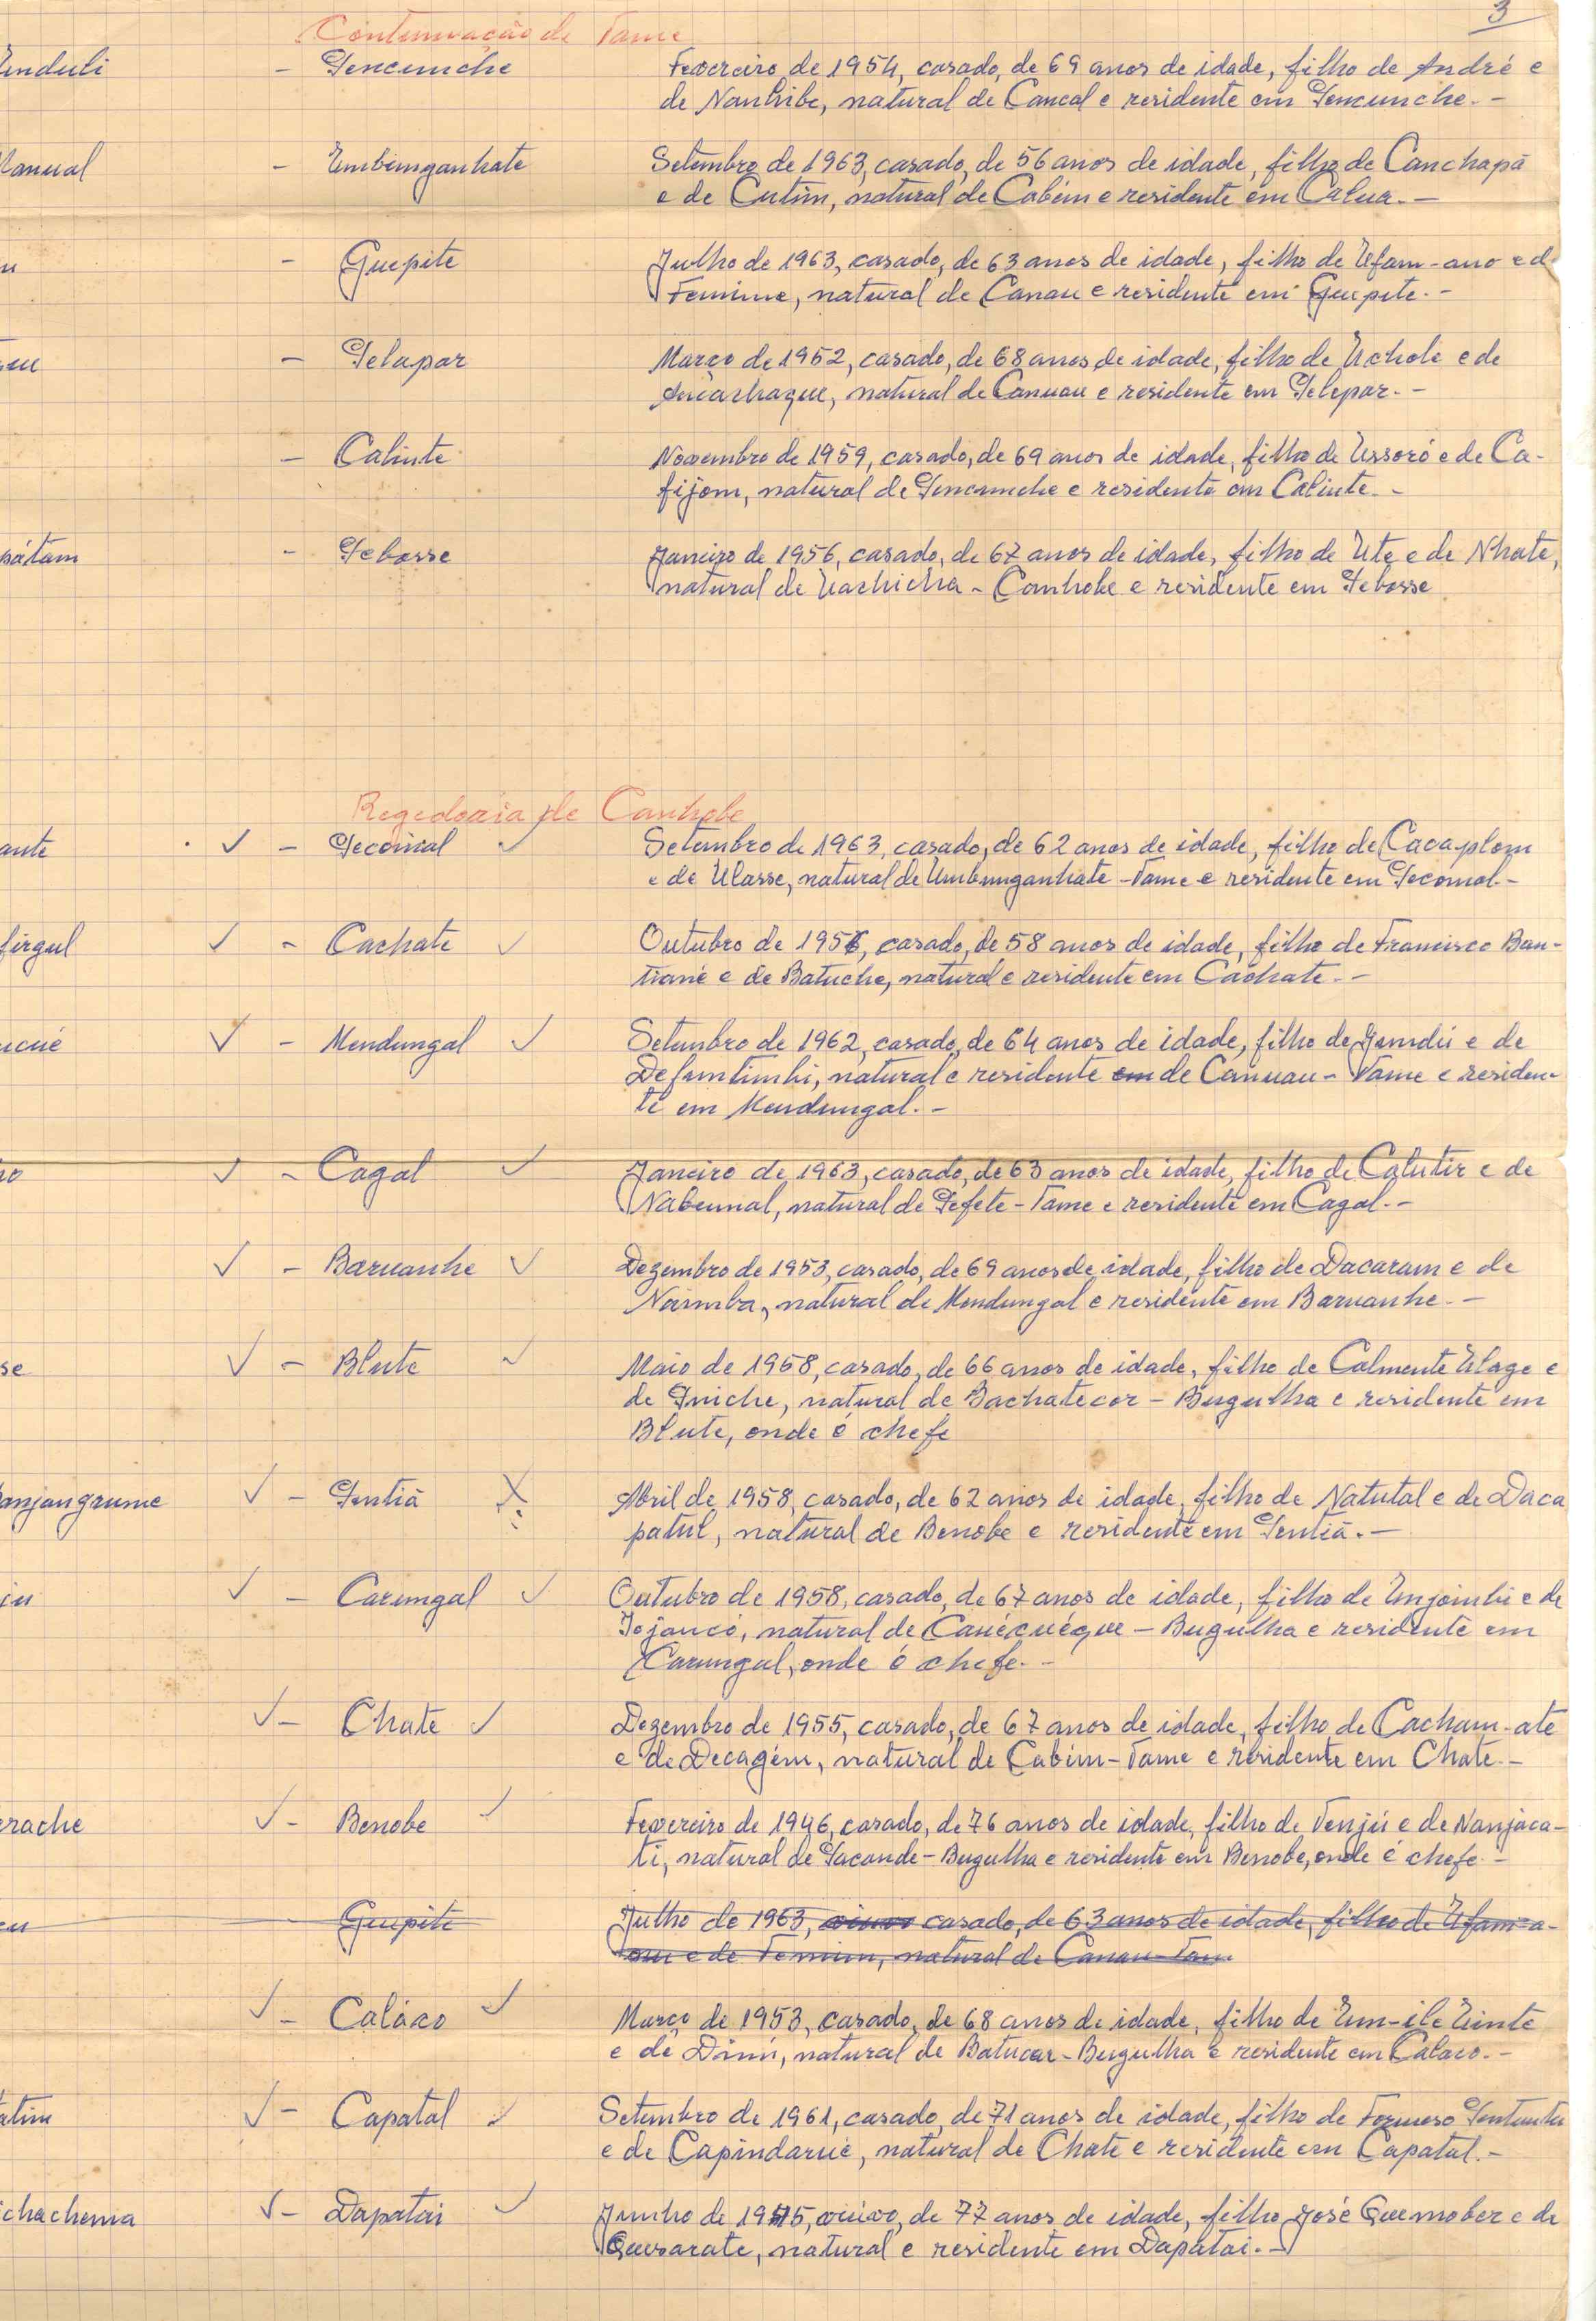 3
Continuação de Tame
induli - Tencunche Fevereiro de 1954, casado, de 69 anos de idade, filho de André e
de Nanhibe, natural de Cancal e residente em Tencunche.-
Manual - Umbinganhate Setembro de 1963, casado, de 56 anos de idade, filho de Canchapá
e de Cutim, natural de Cabém e residente em Calua.-
- Guepite Julho de 1963, casado, de 63 anos de idade, filho de Ufam-ano e d
Feminme, natural de Canau e residente em Guepite.-
- Telapar Março de 1952, casado, de 68 anos de idade, filho de Uchole e de
natural de Canuau e residente em Telepar.-
- Caliute Novembro de 1959, casado, de 69 anos de idade, filho de Ussoró e de Ca-
fijom, natural de Tencunche e residente em Caliute.-
pátam - Tebosse Janeiro de 1956, casado, de 67 anos de idade, filho de Ute e de Nhate,
natural de Uachicha - Canhobe e residente em Tebosse
Regedoria de Canhobe
ante ✓ - Teconial ✓ Setembro de 1963, casado, de 62 anos de idade, filho de Cacaplom
e de Ulasse, natural de Umbunganhate - Tame e residente em Tecomal.-
firgul ✓ - Cachate ✓ Outubro de 1956, casado, de 58 anos de idade, filho de Francisco Ban-
tiané e de Batuche, natural e residente em Cachate.-
ucué ✓ - Mendungal ✓ Setembro de 1962, casado, de 64 anos de idade, filho de Jamdú e de
Defuntimhi, natural e residente em de Canuau - Tame e residen-
te em Mendungal.-
✓ - Cagal ✓ Janeiro de 1963, casado, de 63 anos de idade, filho de Calutir e de
Nabeunal, natural de Tefete - Tame e residente em Cagal.-
✓ - Baruanhe ✓ Dezembro de 1953, casado, de 69 anos de idade, filho de Dacaram e de
Naimba, natural de Mendungal e residente em Baruanhe.-
se ✓ - Blute ✓ Maio de 1958, casado, de 66 anos de idade, filho de Calmente Ulage e
de Tniche, natural de Bachatecor - Bugulha e residente em
Blute, onde é chefe
anjangrume ✓ - Tentiã X Abril de 1958, casado, de 62 anos de idade, filho de Natutal e de Daca
patul, natural de Benobe e residente em Tentiã.-
✓ - Carungal ✓ Outubro de 1958, casado, de 67 anos de idade, filho de Unjoimbi e de
Jojancó, natural de Canécuéque - Bugulha e residente em
Carungal, onde é chefe.-
✓ - Chate ✓ Dezembro de 1955, casado, de 67 anos de idade, filho de Cacham-ate
e de Decagém, natural de Cabim - Tame e residente em Chate.-
rache ✓ - Benobe ✓ Fevereiro de 1946, casado, de 76 anos de idade, filho de Venjú e de Nanjaca-
ti, natural de Tacande - Bugulha e residente em Benobe, onde é chefe.-
Guepite Julho de 1963, viuvo casado, de 63 anos de idade, filho de Ufam-a-
om e de Temium, natural de Canau - Tam
✓ - Caláco ✓ Março de 1953, casado, de 68 anos de idade, filho de Um-ile Uinte
e de Dinú, natural de Batucar - Bugulha e residente em Calaco.-
atim ✓ - Capatal ✓ Setembro de 1961, casado, de 71 anos de idade, filho de Formoso
e de Capindarué, natural de Chate e residente em Capatal.-
chachema ✓ - Dapatai ✓ Junho de 1945, viúvo, de 77 anos de idade, filho José Quemober e de
Quesarate, natural e residente em Dapatai.-